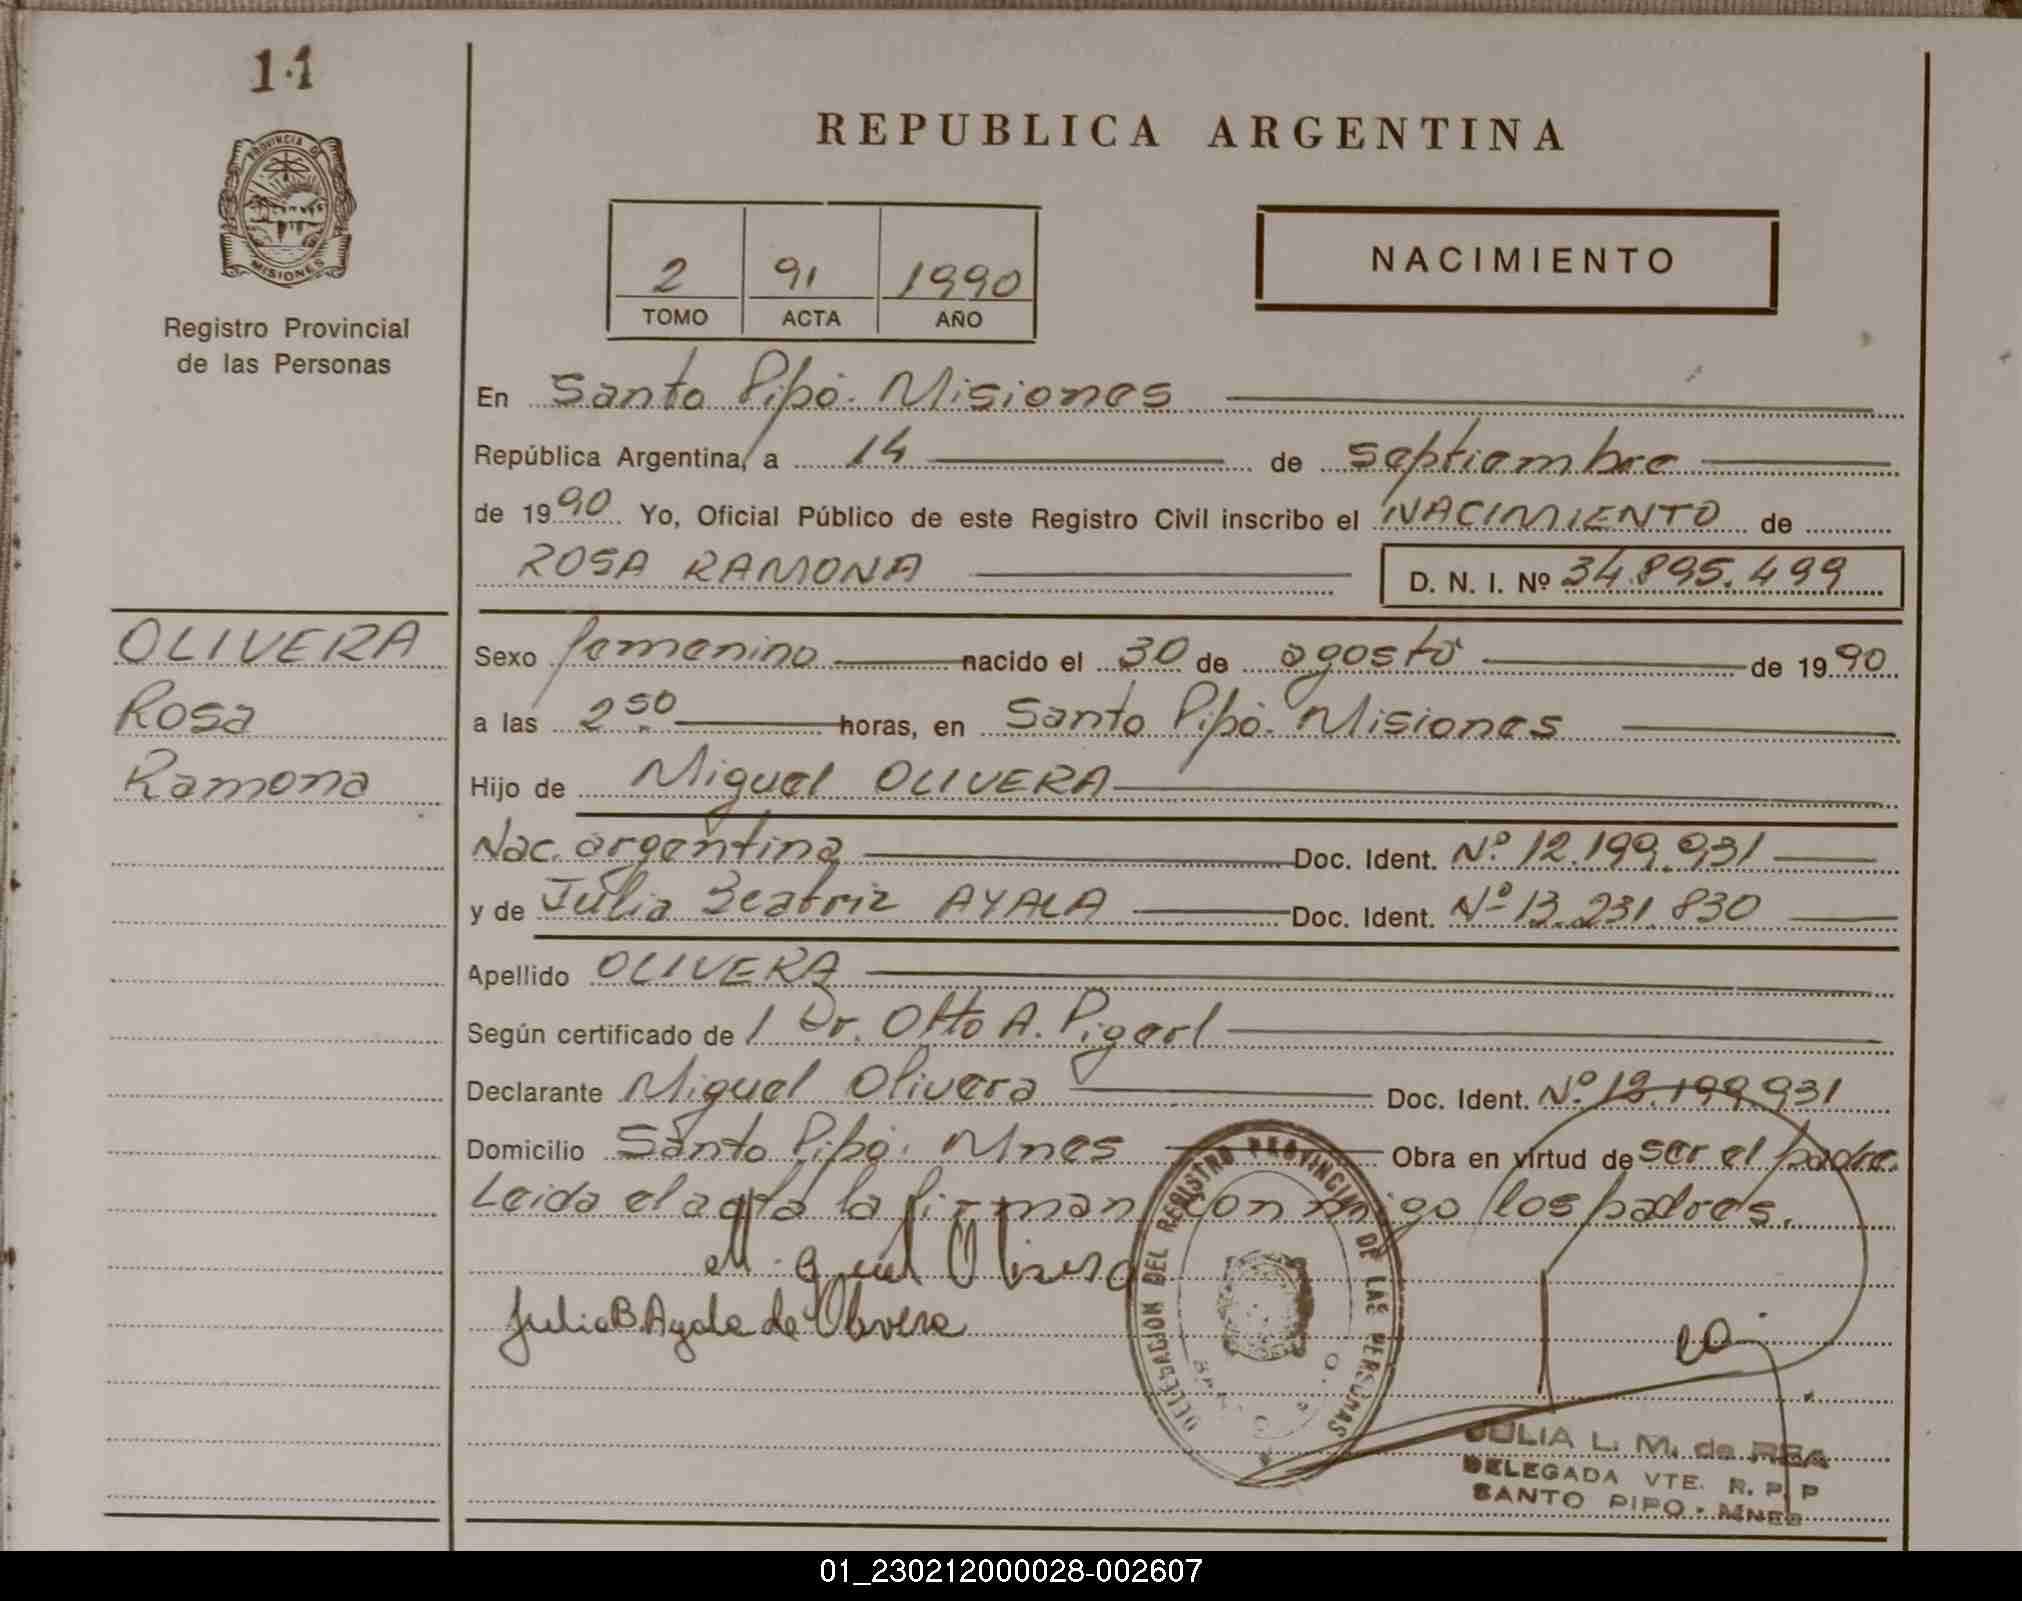 11
PROVINCIA D
MISIONES
Registro Provincial
de las Personas
OLIVERA
Rosa
Ramona
REPUBLICA ARGENTINA
2 91 1990
TOMO ACTA AÑO
NACIMIENTO
En Santo Pipó. Misiones
República Argentina, a 14 de septiembre
de 1990 Yo, Oficial Público de este Registro Civil inscribo el NACIMIENTO de
ROSA RAMONA D. N. I. Nº 34.895.499
Sexo femenino nacido el 30 de agosto de 1990
a las 2 50 horas, en Santo Pipó. Misiones
Hijo de Miguel OLIVERA
Nac. argentina Doc. Ident. Nº 12.199.931
y de Julia Beatriz AYALA Doc. Ident. Nº 13.231.830
Apellido OLIVERA
Según certificado de / Dr. Otto A. Pigerl
Declarante Miguel Olivera Doc. Ident. Nº 12.199.931
Domicilio Santo Pipó. Mnes Obra en virtud de ser el padre.
Leida el acta la firman con migo los padres.
Miguel Olivera
Julia B. Ayala de Olivera
DELEGACION DEL REGISTRO PROVINCIAL DE LAS PERSONAS
JULIA L. M. de REA
DELEGADA VTE. R. P. P
SANTO PIPO - MNES
01_230212000028-002607